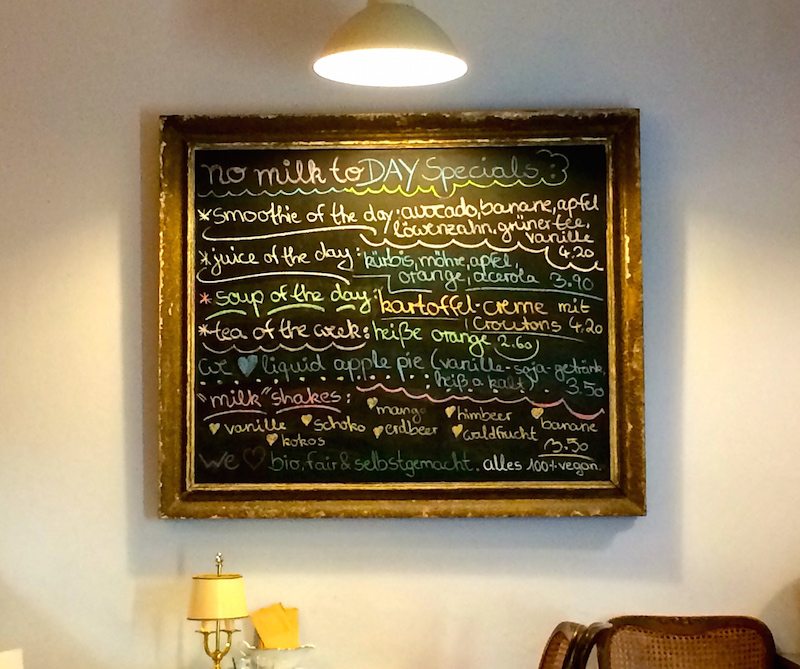 no milk toDAY Specials:
*smoothie of the day: avocado, banane, apfel
löwenzahn, grüner tee,
vanille
4.20
*juice of the day: kürbis, möhre, apfel,
orange, acerola 3.90
*soup of the day: kartoffel-creme mit
Croutons 4.20
*tea of the week: heiße orange 2.60
we liquid apple pie (vanille-soja-getränk,
heiß o. kalt) 3.50
"milk" shakes:
vanille schoko mango himbeer banane
kokos erdbeer waldfrucht
3.50
We bio, fair & selbstgemacht. alles 100% vegan.